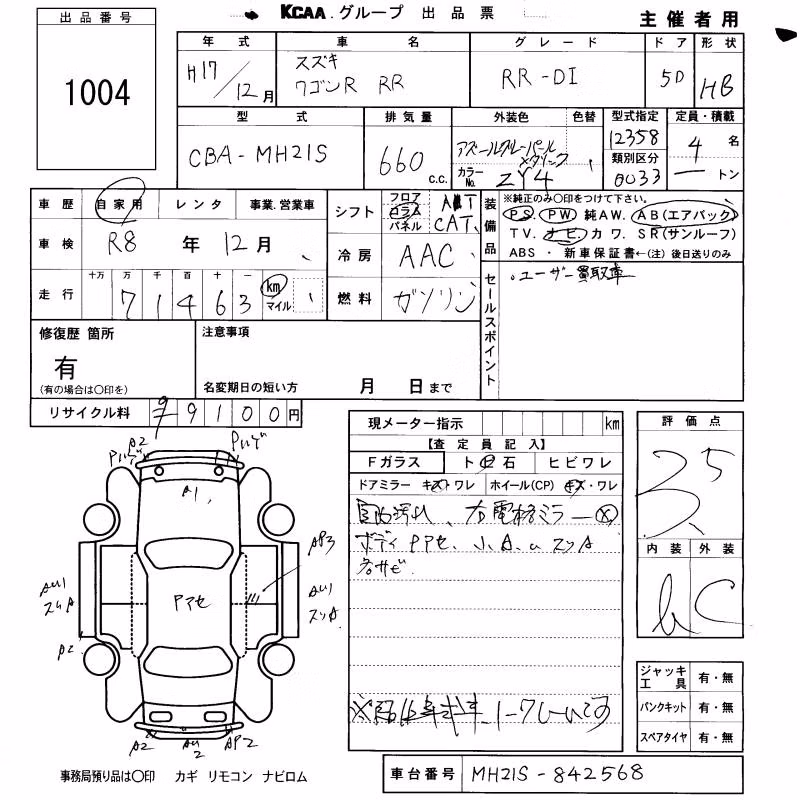 KCAA.グループ 出品票
主催者用
出品番号
1004
年式 車名 グレード ドア 形状
H17/12月 スズキ ワゴンR RR RR-DI 5D HB
型式 排気量 外装色 色替 型式指定 定員・積載
CBA-MH21S 660 c.c. カラーNo. ZY4 12358 4名
類別区分
0033 トン
車歴 自家用 レンタ 事業.営業車
シフト フロア コラム パネル AT CAT.
装備品
※純正のみ〇印をつけて下さい。
PS PW 純AW. AB(エアバック)
TV. ナビ カワ. SR(サンルーフ)
ABS ・ 新車保証書←(注) 後日送りのみ
車検 R8年12月
冷房 AAC
走行 十万 万 千 百 十 一
71463 km マイル
燃料 ガソリン
セールスポイント
・ユーザー買取車
修復歴 箇所
有
(有の場合は〇印を)
注意事項
名変期日の短い方 月 日まで
リサイクル料 9100円
現メーター指示 km
【査定員記入】
Fガラス ト石 ヒビワレ
ドアミラー キズ・ワレ ホイール(CP) キズ・ワレ
右電格ミラー
ボディ Pアセ
評価点
3.5
内装 外装
C
A2
A1
AP3
AU1
Pアセ
A2 AP2
ジャッキ工具 有・無
パンクキット 有・無
スペアタイヤ 有・無
事務局預り品は〇印 カギ リモコン ナビロム
車台番号 MH21S-842568